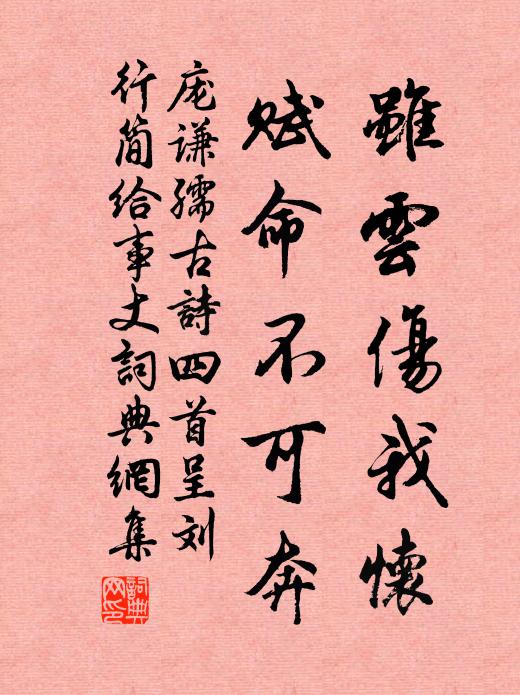 雖雲傷我懷
賦命不可奔
庞謙孺古詩四首呈刘
行簡給事丈詞典網集
詞典網印